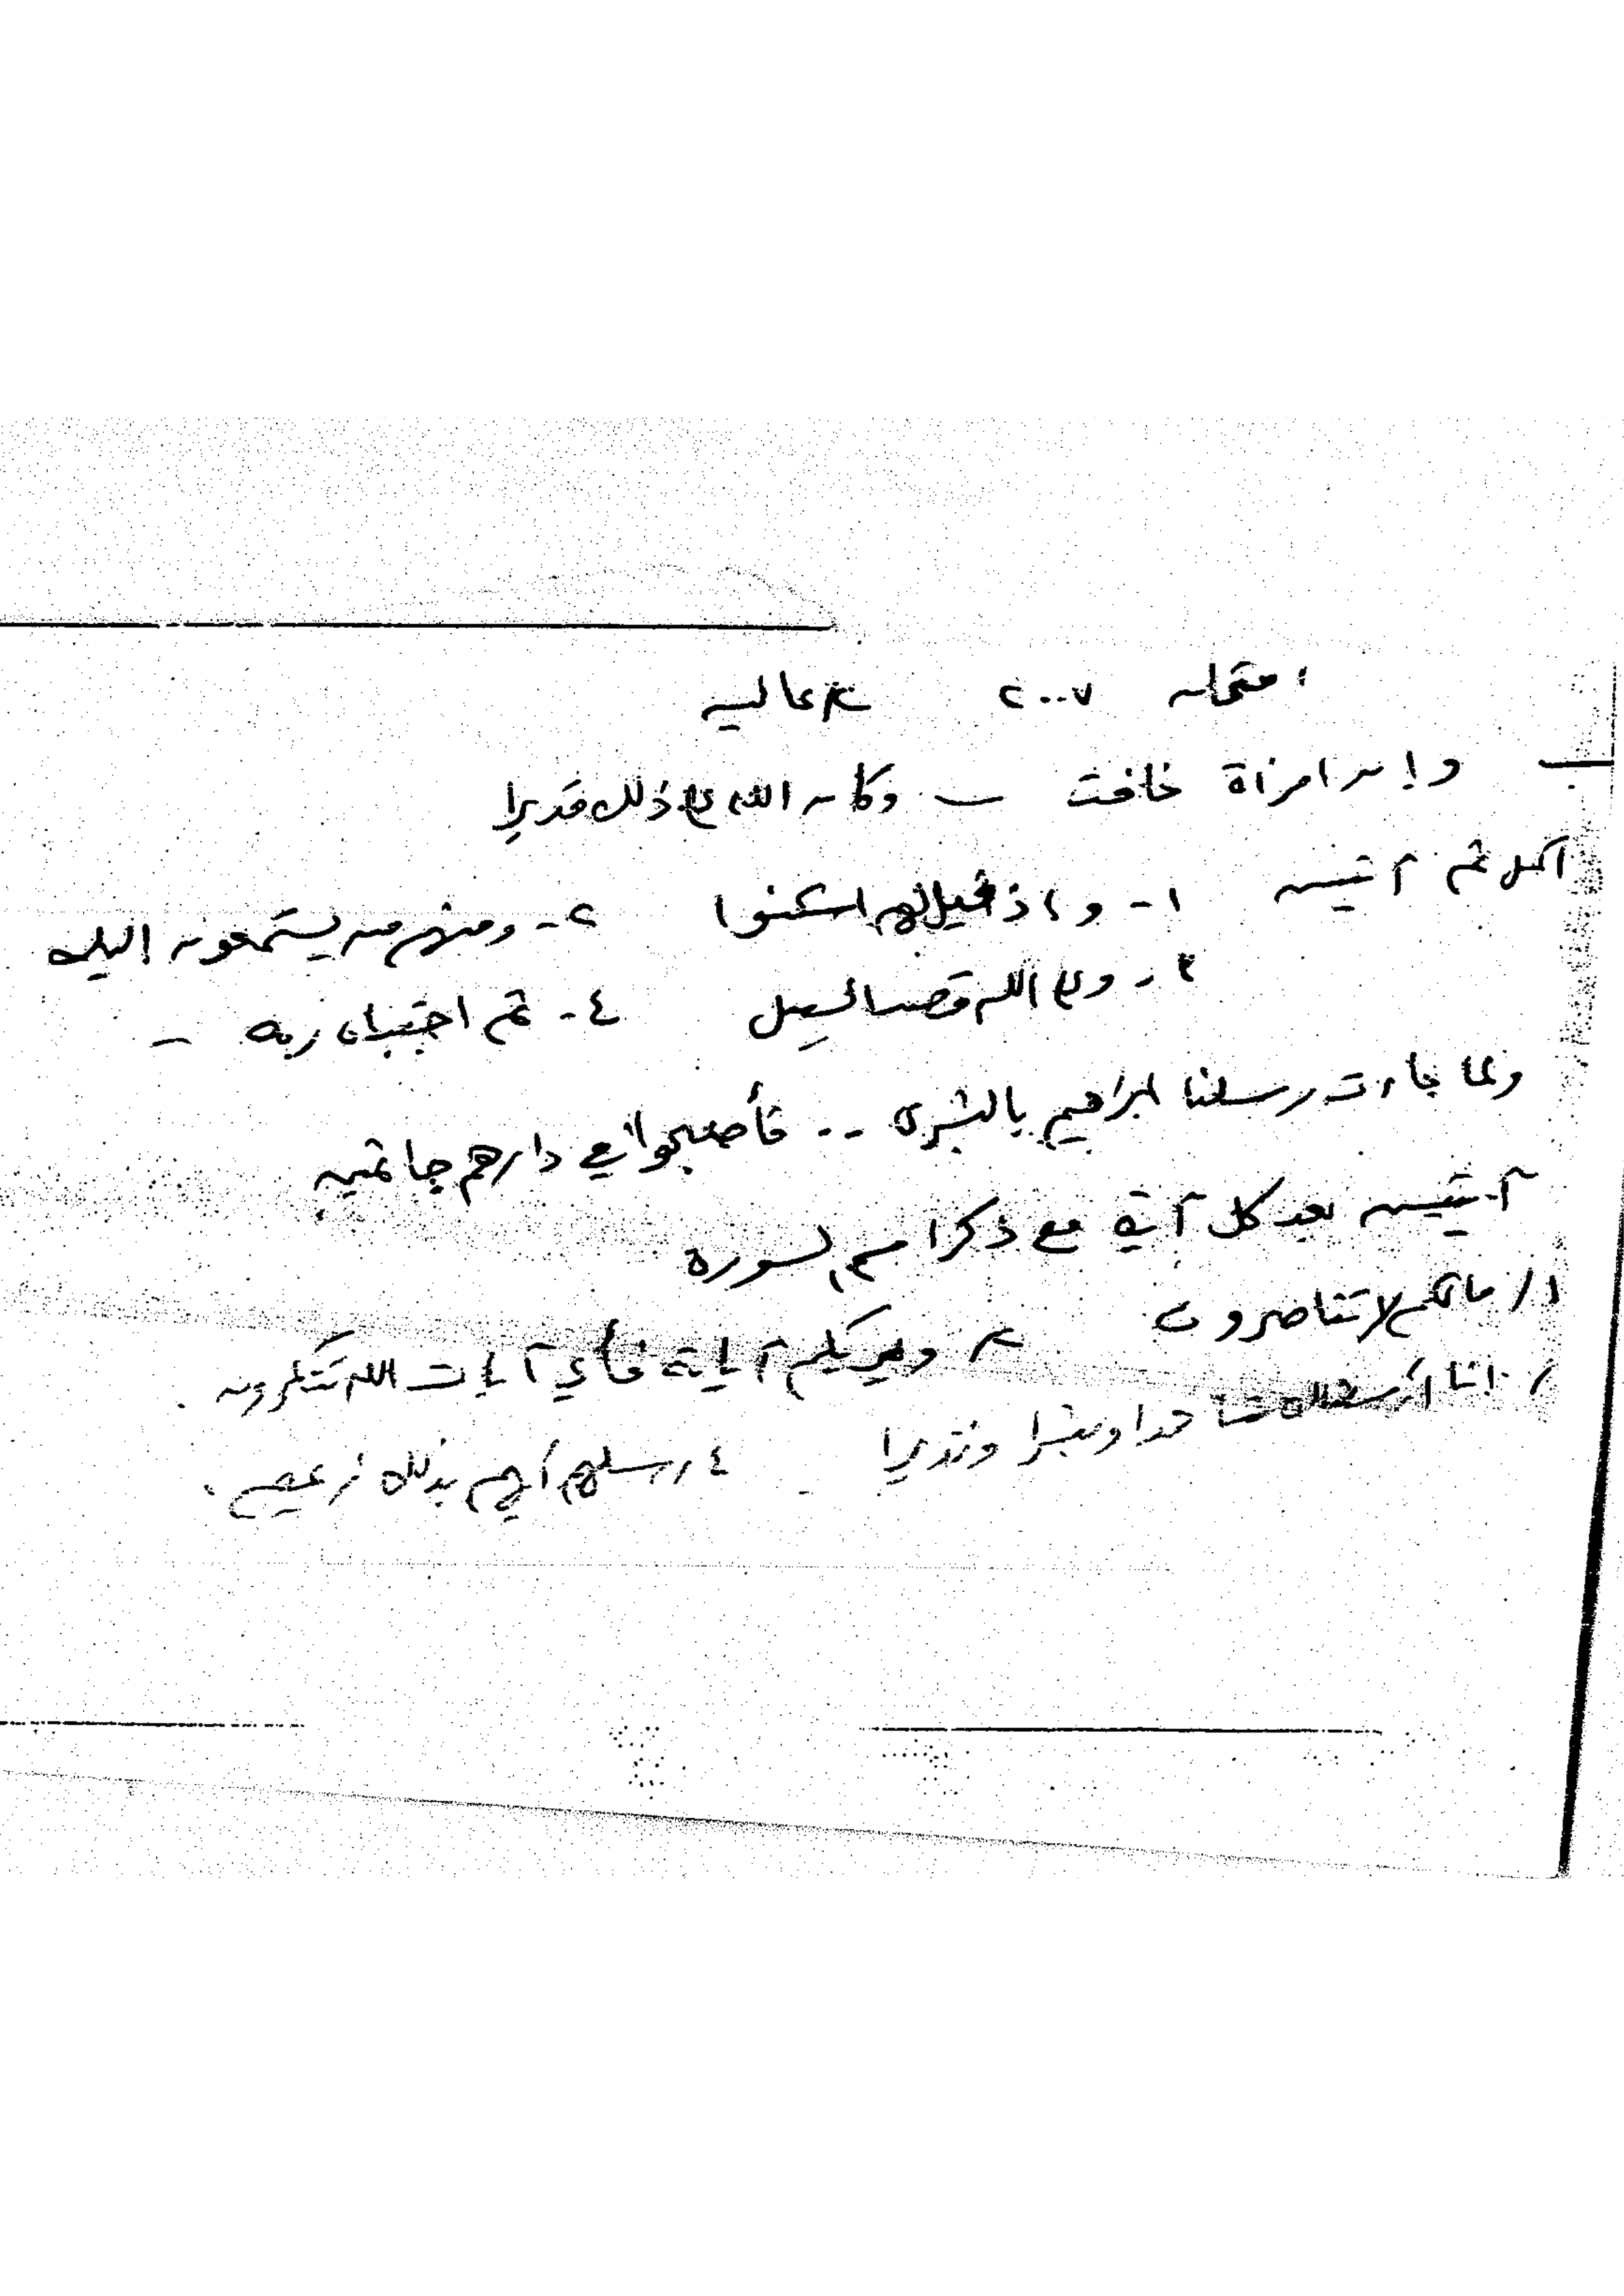 امتحان ٢٠٠٧ ع عاليه
وإن امرأة خافت — وكان الله على ذلك قديرا
اكمل ثم آيتين ١- وإذ قيل لهم اسكنوا ٢- ومنهم من يستمعون اليك
٣- وعلى الله قصد السبيل ٤- ثم اجتباه ربه —
ولما جاءت رسلنا ابراهيم بالبشرى .. فأصبحوا في دارهم جاثمين
آيتين بعد كل آية مع ذكر اسم السورة
١/ مالكم لا تناصرون ٢/ ويريكم آياته فأي آيات الله تنكرون.
/ انا أرسلناك شاهدا ومبشرا ونذيرا ٤/ سلهم أيهم بذلك زعيم.